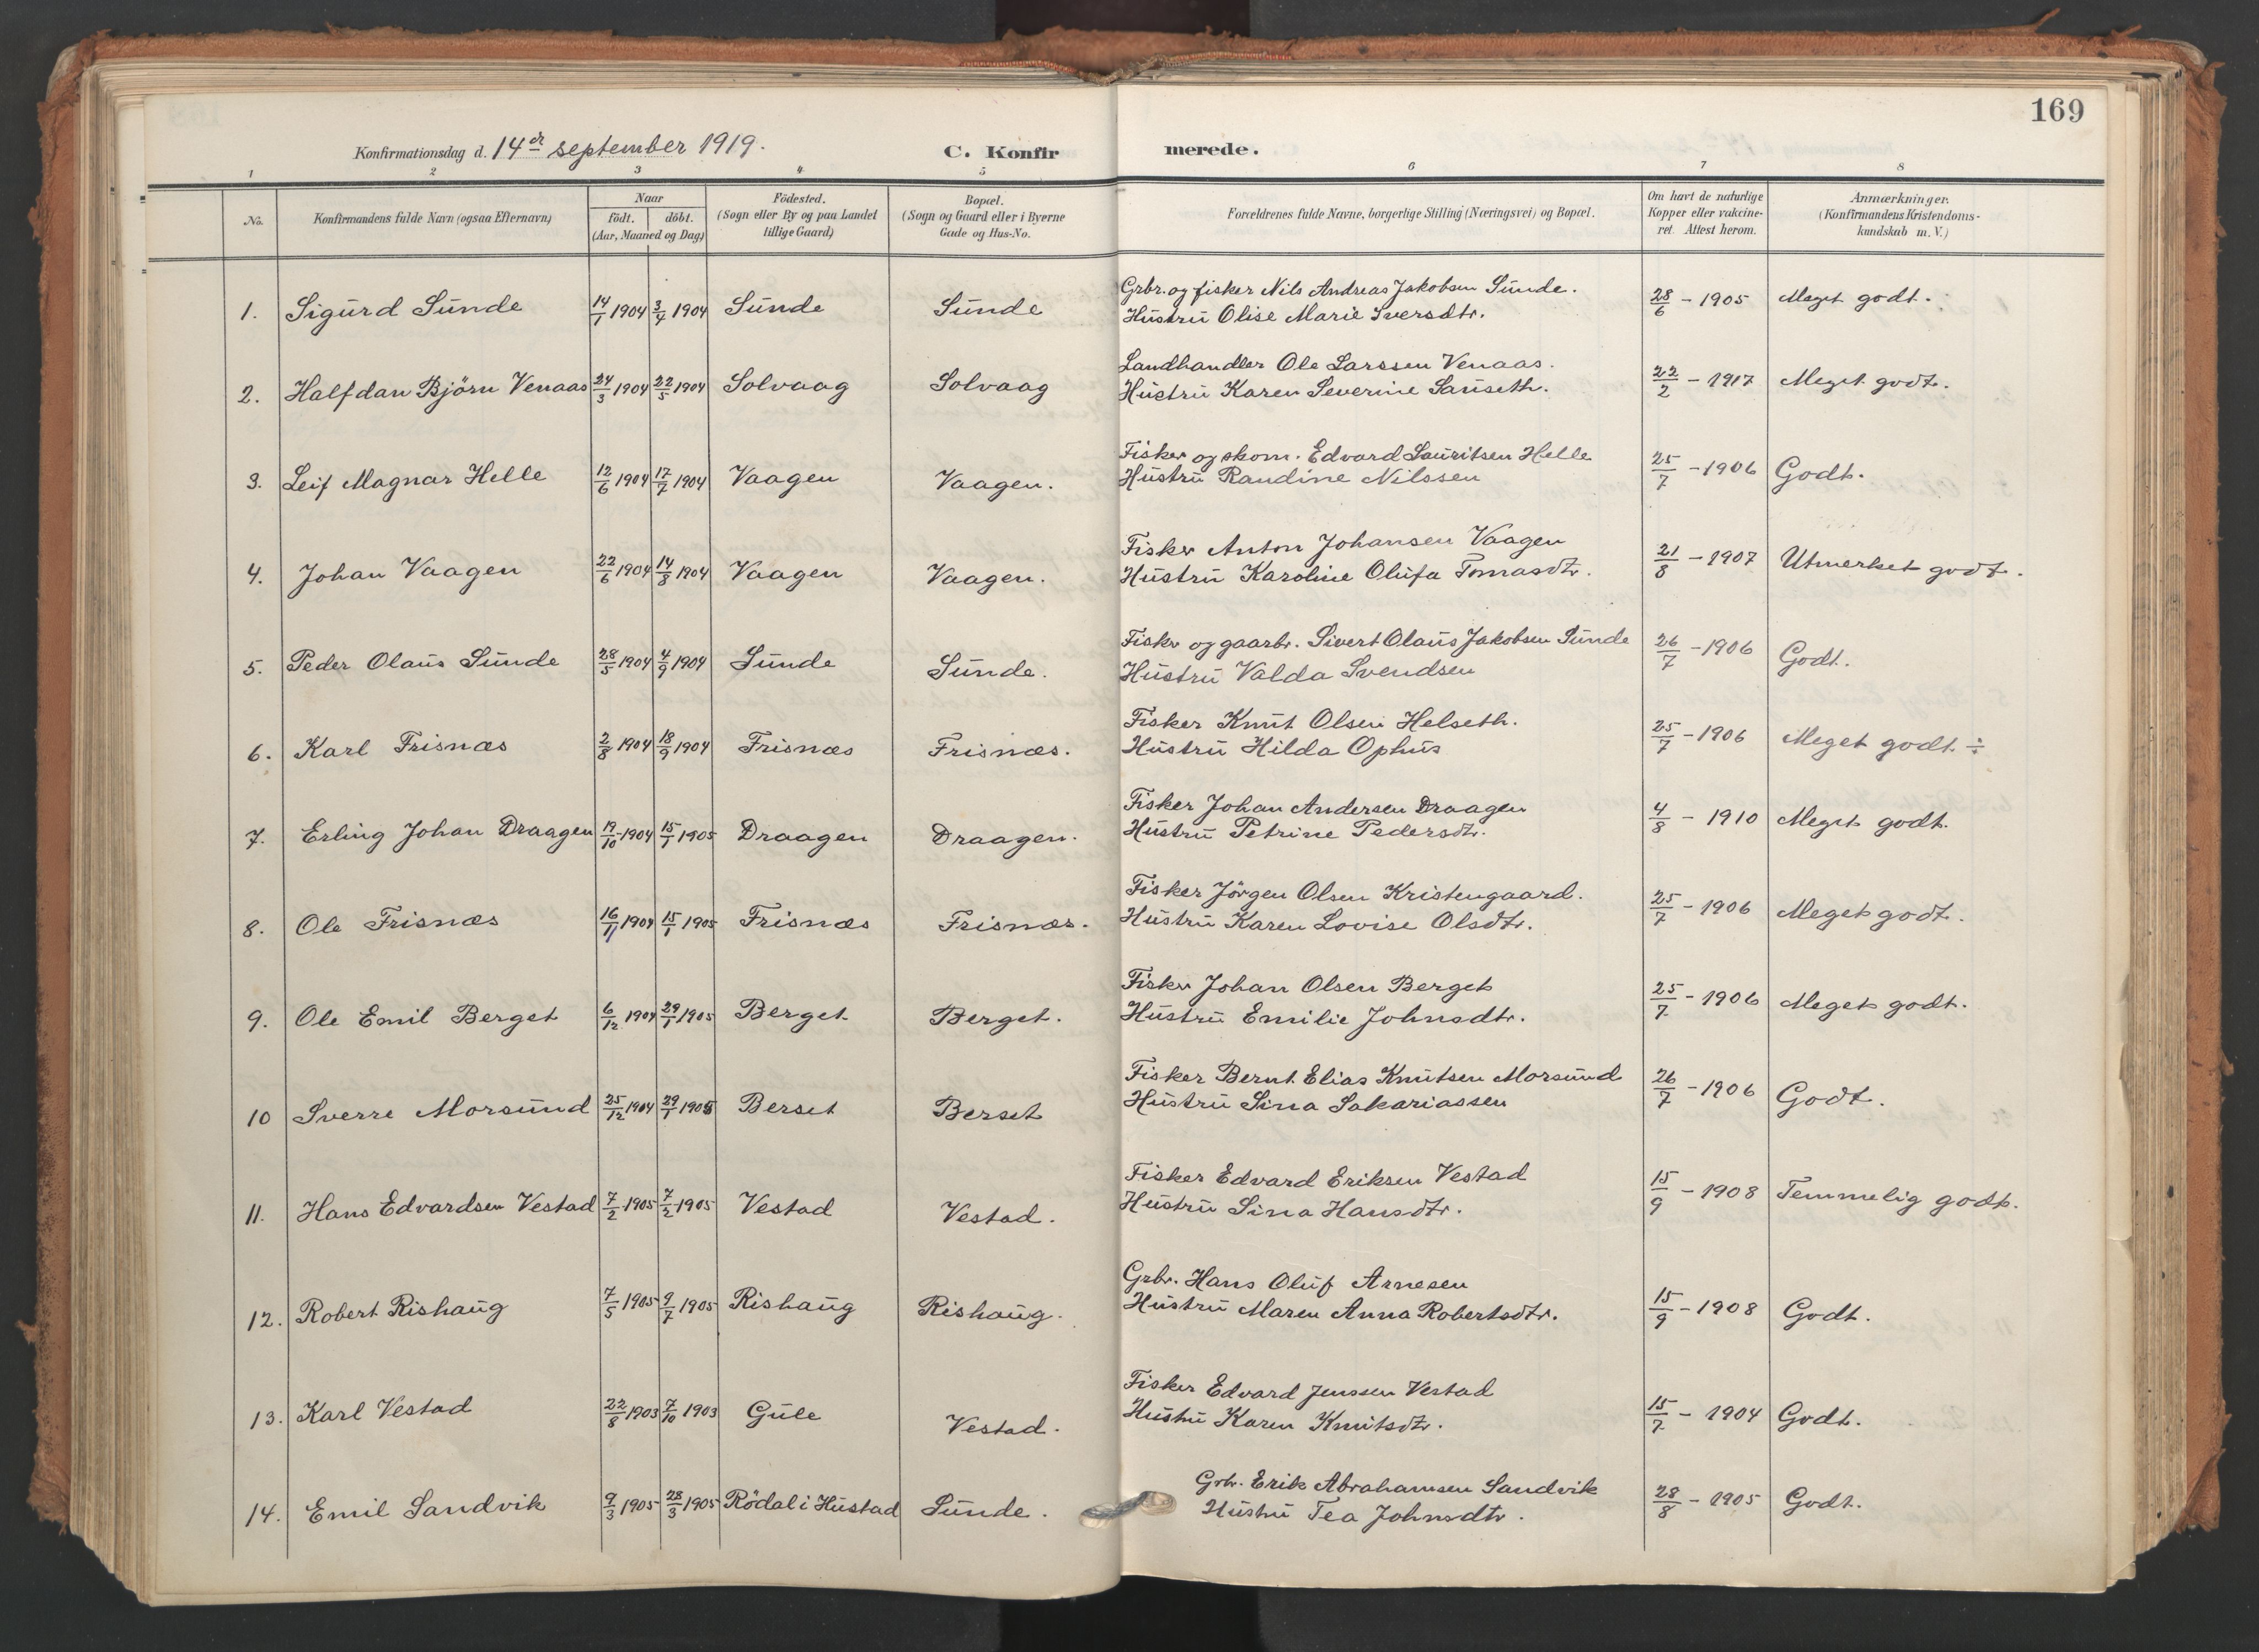 169
Konfirmationsdag d. 14de september 1919. C. Konfirmerede.
1 2 3 4 5 6 7 8
No. Konfirmandens fulde Navn (ogsaa Efternavn) Naar födt. döbt. (Aar, Maaned og Dag) Födested. (Sogn eller By og paa Landet tillige Gaard) Bopæl. (Sogn og Gaard eller i Byerne Gade og Hus-No. Forældrenes fulde Navne, borgerlige Stilling (Næringsvei) og Bopæl. Om havt de naturlige Kopper eller vakcineret. Attest herom. Anmærkninger. (Konfirmandens Kristendomskundskab m. V.)
1. Sigurd Sunde 14/1 1904 3/4 1904 Sunde Sunde Grbr. og fisker Nils Andreas Jakobsen Sunde. 28/6 - 1905 Meget godt.
Hustru Olise Marie Iversdtr.
2. Halfdan Björn Venaas 24/3 1904 22/5 1904 Solvaag Solvaag Landhandler Ole Larssen Venaas. 22/2 - 1917 Meget godt.
Hustru Karen Severine Sauseth.
3. Leif Magnar Helle 12/6 1904 17/7 1904 Vaagen Vaagen. Fisker og skom. Edvard Lauritsen Helle 25/7 - 1906 Godt.
Hustru Randine Nilssen
4. Johan Vaagen 22/6 1904 14/8 1904 Vaagen Vaagen. Fisker Anton Johansen Vaagen 21/8 - 1907 Utmerket godt.
Hustru Karoline Olufa Tomasdtr.
5. Peder Olaus Sunde 28/5 1904 4/9 1904 Sunde Sunde. Fisker og gaarbr. Sivert Olaus Jakobsen Sunde 26/7 - 1906 Godt.
Hustru Valda Svendsen
6. Karl Frisnæs 2/8 1904 18/9 1904 Frisnæs Frisnæs. Fisker Knut Olsen Helseth. 25/7 - 1906 Meget godt ÷
Hustru Hilda Ophus
7. Erling Johan Draagen 19/10 1904 15/1 1905 Draagen Draagen. Fisker Johan Andersen Draagen 4/8 - 1910 Meget godt.
Hustru Petrine Pedersdtr.
8. Ole Frisnæs 16/11 1904 15/1 1905 Frisnæs Frisnæs. Fisker Jörgen Olsen Kristengaard. 25/7 - 1906 Meget godt.
Hustru Karen Lovise Olsdtr.
9. Ole Emil Berget 6/12 1904 29/1 1905 Berget Berget. Fisker Johan Olsen Berget 25/7 - 1906 Meget godt.
Hustru Emilie Johnsdtr.
10 Sverre Morsund 25/12 1904 29/1 1905 Berset Berset Fisker Bernt Elias Knutsen Morsund 26/7 - 1906 Godt.
Hustru Sina Sakariassen
11. Hans Edvardsen Vestad 7/2 1905 7/2 1905 Vestad Vestad. Fisker Edvard Eriksen Vestad 15/9 - 1908 Temmelig godt.
Hustru Sina Hansdtr.
12. Robert Rishaug 7/5 1905 9/7 1905 Rishaug Rishaug. Grbr. Hans Oluf Arnesen 15/9 - 1908 Godt.
Hustru Maren Anna Robertsdtr.
13. Karl Vestad 22/8 1903 7/10 1903 Gule Vestad. Fisker Edvard Jenssen Vestad 15/7 - 1904 Godt.
Hustru Karen Knutsdtr.
14. Emil Sandvik 9/3 1905 28/3 1905 Rödal i Hustad Sunde. Grbr. Erik Abrahamsen Sandvik 28/8 - 1905 Godt.
Hustru Tea Johnsdtr.